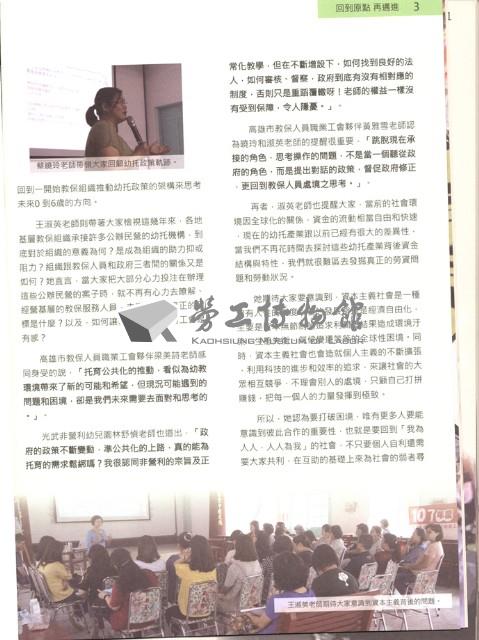 回到原點 再邁進 3
蔡曉玲老師帶領大家回顧幼托政策軌跡。
回到一開始教保組織推動幼托政策的架構來思考
未來0 到6歲的方向。
王淑英老師則帶著大家檢視這幾年來，各地
基層教保組織承接許多公辦民營的幼托機構，到
底對於組織的意義為何？是成為組織的助力抑或
阻力？組織跟教保人員和政府三者間的關係又是
如何？她直言，當大家把大部分心力投注在辦理
這些公辦民營的案子時，就不再有心力去瞭解、
經營基層的教保服務人員，
標是什麼？以及，如何讓
有感？
高雄市教保人員職業工會夥伴梁美詩老師感
同身受的說，「托育公共化的推動，看似為幼教
環境帶來了新的可能和希望，但現況可能遇到的
問題和困境，卻是我們未來需要去面對和思考的
。」。
光武非營利幼兒園林舒愼老師也道出，「政
府的政策不斷變動，準公共化的上路，真的能為
托育的需求鬆綁嗎？我很認同非營利的宗旨及正
常化教學，但在不斷增設下，如何找到良好的法
人，如何審核、督察，政府到底有沒有相對應的
制度，否則只是重蹈覆轍呀！老師的權益一樣沒
有受到保障，令人隱憂。」。
高雄市教保人員職業工會夥伴黃雅雪老師認
為曉玲和淑英老師的提醒很重要，「跳脫現在承
接的角色，思考操作的問題，不是當一個聽從政
府的角色，而是提出對話的政策，督促政府修正
，更回到教保人員處境之思考。」。
再者，淑英老師也提醒大家，當前的社會環
境因全球化的關係，資金的流動相當自由和快速
，現在的幼托產業跟以前已經有很大的差異性，
當我們不再花時間去探討這些幼托產業背後資金
結構與特性，我們就很難區去發掘真正的勞資問
題和勞動狀況。
她期待大家要意識到，資本主義社會是一種
經濟自由化，
追求利
結果造成環境汙
全球性困境。同
時，資本主義社會也會造就個人主義的不斷擴張
，利用科技的進步和效率的追求，來讓社會的大
眾相互競爭，不理會別人的處境，只顧自己打拼
賺錢，把每一個人的力量發揮到極致。
所以，她認為要打破困境，唯有更多人更能
意識到彼此合作的重要性，也就是要回到「我為
人人，人人為我」的社會，不只要個人自利還需
要大家共利，在互助的基礎上來為社會的弱者尋
勞工博物館
KAOHSIUNG MUSEUM OF LABOR
107
王淑英老師期待大家意識到資本主義背後的問題。